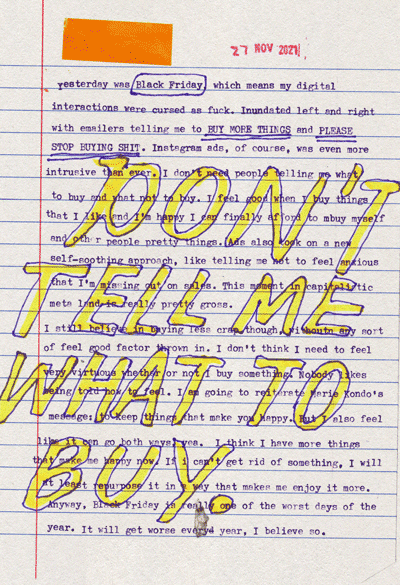 27 NOV 2021
yesterday was Black Friday, which means my digital
interactions were cursed as fuck. Inundated left and right
with emailers telling me to BUY MORE THINGS and PLEASE
STOP BUYING SHIT. Instagram ads, of course, was even more
intrusive than ever. I don't need people telling me what
to buy and what not to buy. I feel good when I buy things
that I like and I'm happy I can finally afford to mbuy myself
and other people pretty things. Ads also took on a new
self-soothing approach, like telling me not to feel anxious
that I'm missing out on sales. This moment in capitalistic
meta land is really pretty gross.
I still believe in buying less crap though, withoutn any sort
of feel good factor thrown in. I don't think I need to feel
very virtuous whether or not I buy something. Nobody likes
being told how to feel. I am going to reiterate Marie Kondo's
message: to keep things that make you happy. But I also feel
like it can go both ways, yes. I think I have more things
that make me happy now. If i can't get rid of something, I will
at least repurpose it in a way that makes me enjoy it more.
Anyway, Black Friday is really one of the worst days of the
year. It will get worse every year, I believe so.
DON'T
TELL ME
WHAT TO
BUY.